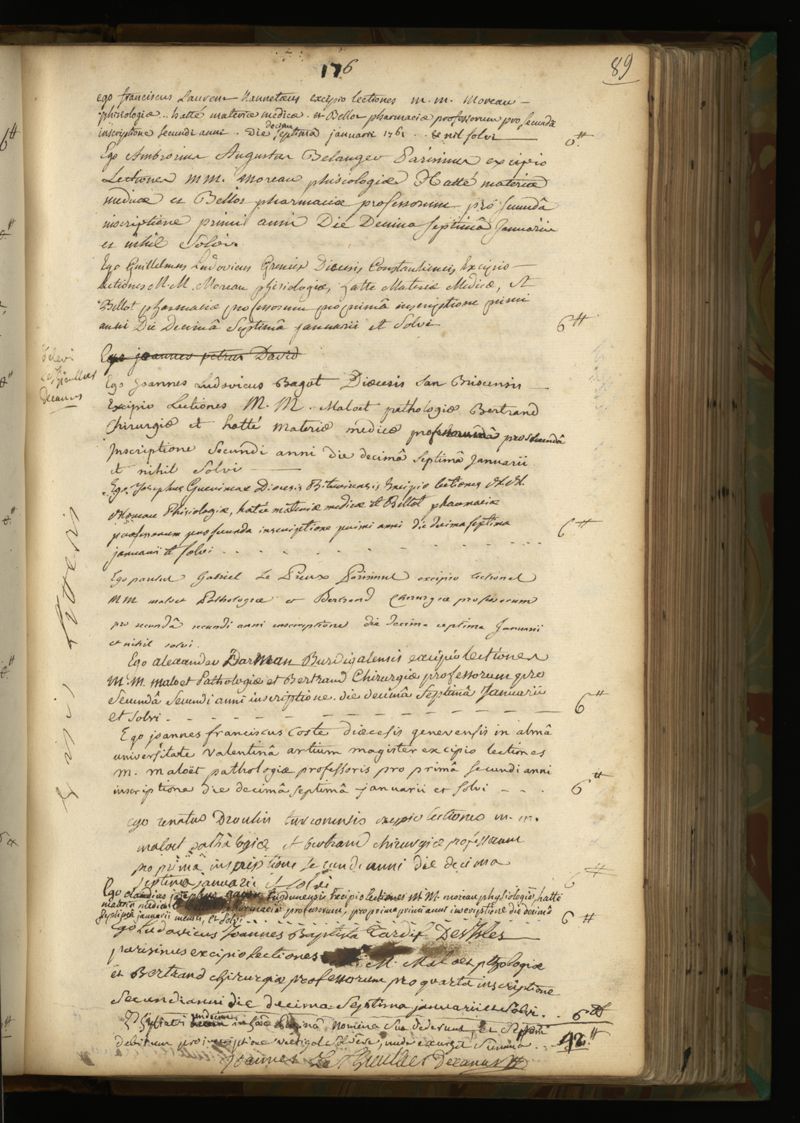 176
89
ego franciscus Laurent excipio lectiones m. m. Moreau
phisiologiæ .. hatté materiæ medicæ et Bellot pharmaciæ professorum pro secunda
inscriptione secundi anni . die decima septima januarii 1761 .. & nil solvi
6tt
Ego Ambrosius Augustus Belanger Parisinus excipio
Lectiones MM. Moreau phisiologiæ Hatté materiæ
medicæ et Bellot pharmaciæ professorum pro secundâ
inscriptione primi anni Die Decima septimâ Januarii
et nihil solvi.
Ego Guillelmus Ludovicus Grenier Diœcesis Constantiensis, Excipio
lectiones M. M. Moreau phisiologiæ, hatte Materiæ Medicæ, et
Bellot pharmaciæ professorum pro primâ inscriptione primi
anni Die Decimâ septimâ januarii et solvi
6tt
Ego joannes petrus David
delevi
decanus
Ego Joannes Ludovicus Bagot Diœcesis San Briocensis
Excipio Lectiones M. M. Maloet pathologiæ Bertrand
Chirurgiæ et hatté materiæ medicæ professorum pro secundâ
Inscriptione secundi anni die decimâ septimâ Januarii
et nihil solvi
Ego Josephus Diœcesis Bituricensis Excipio lectiones MM.
Moreau Phisiologiæ, hatée materiæ medicæ et Bellot pharmaciæ
professorum pro secunda inscriptione primi anni die decima septima
januarii et solvi
6tt
Ego paulus Gabriel Le Preux Parisinus excipio lectiones
MM maloet Pathologiæ et Bertrand Chirurgiæ professorum
pro secundâ secundi anni inscriptione die decima septima Januarii
et nihil solvi.
Ego alexander Darman Burdigalensis excipio lectiones
M. M. maloet Pathologiæ et Bertrand Chirurgiæ professorum pro
secundâ secundi anni inscriptione. die decimâ septimâ Januarii
et solvi
6tt
Ego joannes franciscus coste diœcesis genevensis in almâ
universitate valentinâ artium magister excipio lectiones
m. maloët pathologiæ professoris pro primâ secundi anni
inscriptione die decimâ septimâ januarii et solvi
6tt
ego renatus Droulin turonensis excipio lectiones m. m.
maloet pathologiæ et bertrand chirurgiæ professorum
pro primâ inscriptione secundi anni die decima
septima januarii et solvi
6tt
Ego claudius josephus lugdunensis Excipio lectiones M M. moreau physiologiæ, hatté
materiæ medicæ pharmaciæ professorum, pro prima primi anni inscriptione die decimâ
septimâ januarii mensis, et solvi
6tt
Ego Ludovicus Joannes Baptista Tardif Desisles
parisinus excipio lectiones M. Maloet pthologiæ
et Bertrand chirurgiæ professorum pro quarta inscriptione
secundi anni die decima septima januarii et solvi.
6tt
undecim in hac pagina Nomina sua dederunt, et septem
debitum pro inscriptione vectigal solvere, unde exurgit summa
42tt
joannes Le Thieullier Decanus